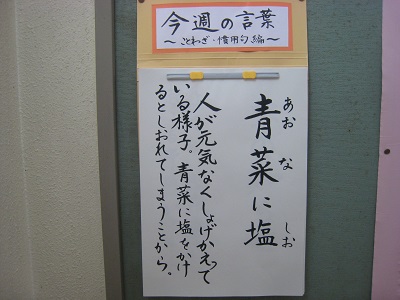 今週の言葉
～ことわざ・慣用句編～
青菜に塩
あおな しお
人が元気なくしょげかえって
いる様子。青菜に塩をかけ
るとしおれてしまうことから。